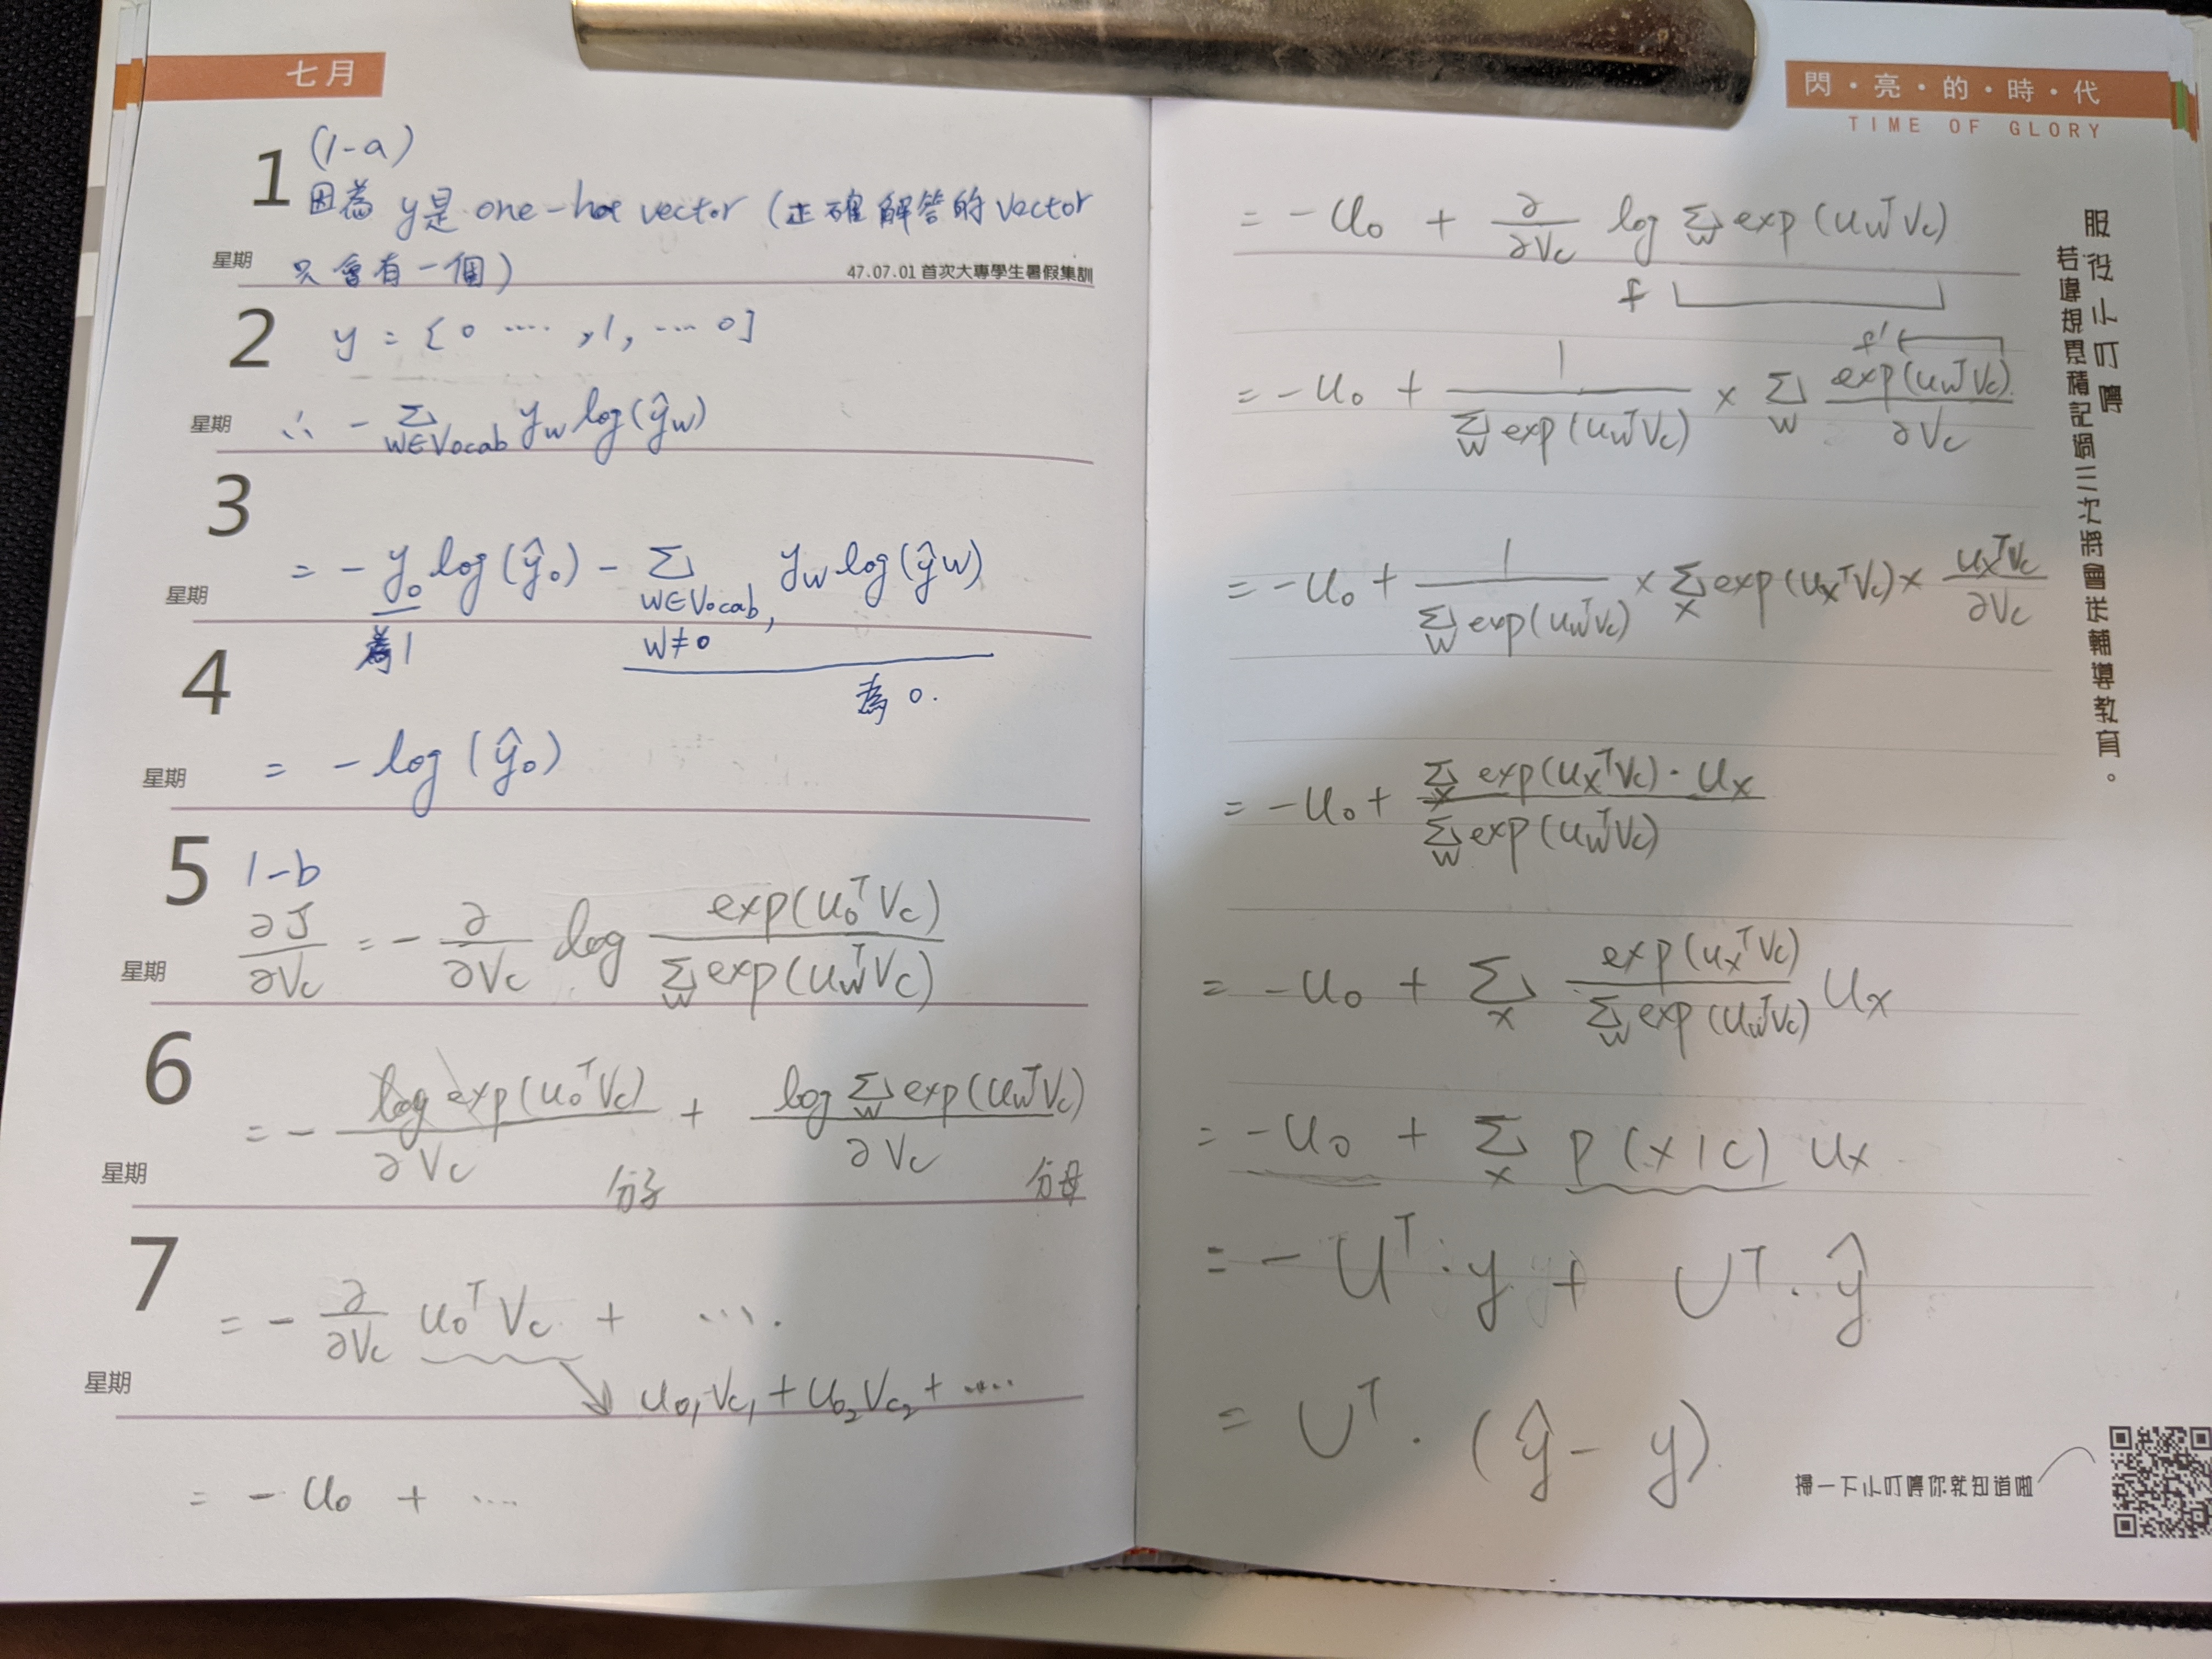 七月
1
(1-a)
因為 y是 one-hot vector (正確解答的 vector
星期 只會有一個)
47.07.01 首次大專學生暑假集訓
2
y = [0 ···· ,1, ···· 0]
星期 ∴ - Σ_{w∈Vocab} y_w log(ŷ_w)
3
= - y_o log(ŷ_o) - Σ_{w∈Vocab, w≠o} y_w log(ŷ_w)
星期
4
為1
為 0.
星期 = - log (ŷ_o)
5
1-b
星期 ∂J/∂V_c = - ∂/∂V_c log exp(u_o^T V_c) / Σ_w exp(u_w^T V_c)
6
= - log exp(u_o^T V_c) / ∂V_c + log Σ_w exp(u_w^T V_c) / ∂V_c
星期 分子 分母
7
= - ∂/∂V_c u_o^T V_c + ····
星期 u_{o1} V_{c1} + u_{o2} V_{c2} + ····
= - u_o + ····
閃・亮・的・時・代
TIME OF GLORY
= - u_o + ∂/∂V_c log Σ_w exp(u_w^T V_c)
f
f'
= - u_o + 1 / Σ_w exp(u_w^T V_c) × Σ_w exp(u_w^T V_c) / ∂V_c
= - u_o + 1 / Σ_w exp(u_w^T V_c) × Σ_x exp(u_x^T V_c) × u_x^T V_c / ∂V_c
= - u_o + Σ_x exp(u_x^T V_c) · u_x / Σ_w exp(u_w^T V_c)
= - u_o + Σ_x exp(u_x^T V_c) / Σ_w exp(u_w^T V_c) u_x
= - u_o + Σ_x p(x|c) u_x
= - U^T · y + U^T · ŷ
= U^T · (ŷ - y)
服役小叮嚀
若違規累積記過三次將會送輔導教育。
掃一下小叮嚀你就知道啦